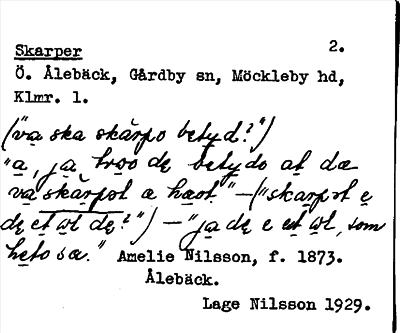 Skarper 2.
Ö. Ålebäck, Gårdby sn, Möckleby hd,
Klmr. l.
("va ska skärpo betyd?")
"a, ja troo de betydo at dæ
va skärpot æ hæot." – ("skarpot e
de et ol de?") – "ja de e et ol, som
heto sæ." Amelie Nilsson, f. 1873.
Ålebäck.
Lage Nilsson 1929.